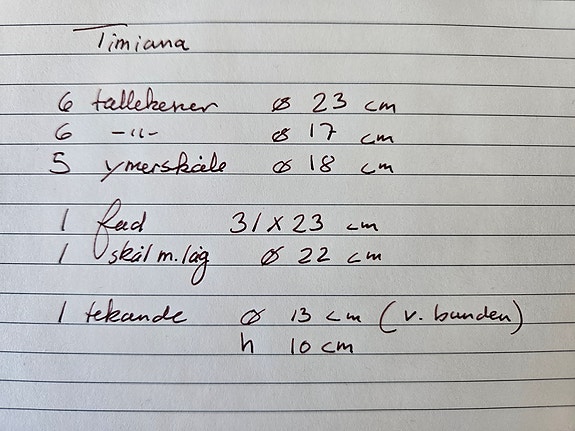 Timiana
6 tallekener ø 23 cm
6 -"- ø 17 cm
5 ymerskåle ø 18 cm
1 fad 31 x 23 cm
1 skål m. låg ø 22 cm
1 tekande ø 13 cm (v. bunden)
h 10 cm